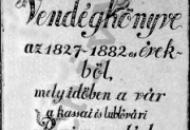 Vendégkönyve
az 1827-1882 es évek-
ből,
mely időben a vár
a kassai és lublóvári